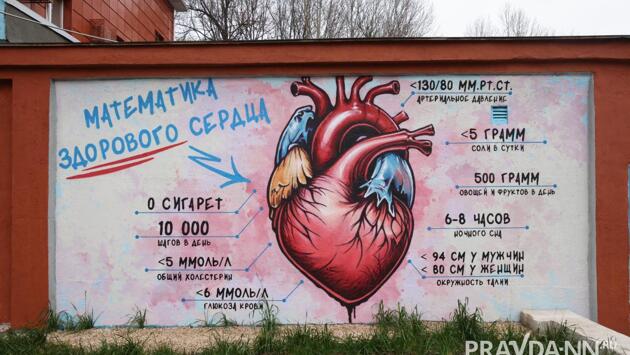 МАТЕМАТИКА
ЗДОРОВОГО СЕРДЦА
0 СИГАРЕТ
10 000
ШАГОВ В ДЕНЬ
<5 ММОЛЬ/Л
ОБЩИЙ ХОЛЕСТЕРИН
<6 ММОЛЬ/Л
ГЛЮКОЗА КРОВИ
<130/80 ММ.РТ.СТ.
АРТЕРИАЛЬНОЕ ДАВЛЕНИЕ
<5 ГРАММ
СОЛИ В СУТКИ
500 ГРАММ
ОВОЩЕЙ И ФРУКТОВ В ДЕНЬ
6-8 ЧАСОВ
НОЧНОГО СНА
< 94 СМ У МУЖЧИН
< 80 СМ У ЖЕНЩИН
ОКРУЖНОСТЬ ТАЛИИ
PRAVDA-NN.RU